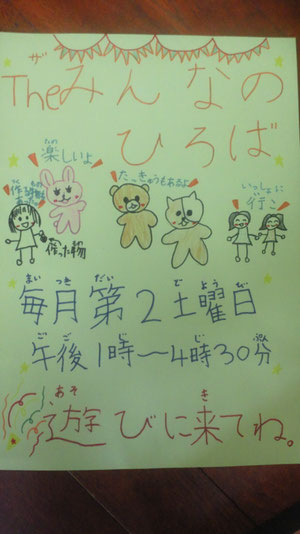 ザ
Theみんなの
ひろば
たの
楽しいよ
たっきゅうもあるよ
いっしょに
行こ
作った物
まい つき だい ど よう び
毎月第2土曜日
ご ご じ じ ぷん
午後1時〜4時30分
あそ き
遊びに来てね。